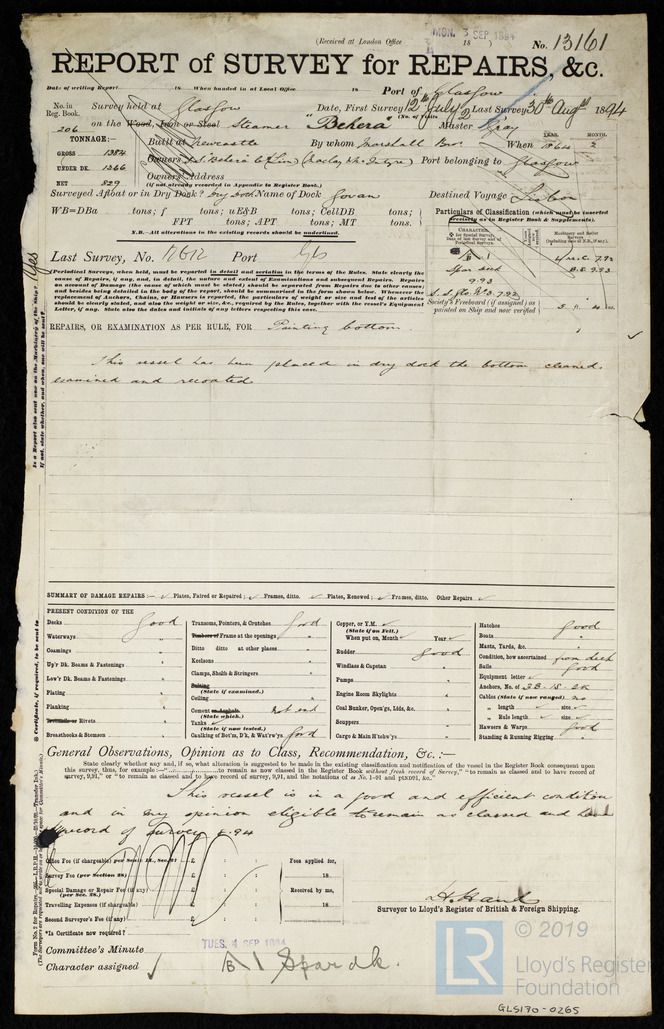 (Received at London Office MON. 3 SEP 1894 18 ) No. 13161
REPORT of SURVEY for REPAIRS, &c.
Date of writing Report 18 When handed in at Local Office 18 Port of Glasgow
No. in Reg. Book. Survey held at Glasgow Date, First Survey 12th July Last Survey 30th Aug 1894
(No. of Visits
206 on the Wood, Iron or Steel Steamer "Behera" Master Gray
TONNAGE: Built at Newcastle By whom Marshall Bros When 1864 2
YEAR. MONTH.
GROSS 1384 Owners S.S. Behera Co (Lim) (Maclay & McIntyre) Port belonging to Glasgow
UNDER DK. 1366 Owners' Address
NET 829 (if not already recorded in Appendix to Register Book.)
Surveyed Afloat or in Dry Dock? Dry Dock Name of Dock Govan Destined Voyage Lisbon
WB=DBa tons; f tons; uE&B tons; CellDB tons;
FPT tons; APT tons; MT tons.
N.B.- All alterations in the existing records should be underlined.
Particulars of Classification (which must be inserted precisely as in Register Book & Supplements).
Last Survey, No. Port Gls
Spar deck
9.93
B.S. 9.93
Society's Freeboard (if assigned) as painted on Ship and now verified
(Periodical Surveys, when held, must be reported in detail and seriatim in the terms of the Rules. State clearly the
cause of Repairs, if any, and, in detail, the nature and extent of Examinations and subsequent Repairs. Repairs
on account of Damage (the cause of which must be stated) should be separated from Repairs due to other causes;
and besides being detailed in the body of the report, should be summarised in the form shown below. Whenever the
replacement of Anchors, Chains, or Hawsers is reported, the particulars of weight or size and test of the articles
should be clearly stated, and also the weight or size, &c., required by the Rules, together with the vessel's Equipment
Letter, if any. State also the dates and initials of any letters respecting this case.
REPAIRS, OR EXAMINATION AS PER RULE, FOR Painting bottom.
This vessel has been placed in dry dock the bottom cleaned,
examined and recoated
SUMMARY OF DAMAGE REPAIRS:- Plates, Faired or Repaired; Frames, ditto. Plates, Renewed; Frames, ditto. Other Repairs
PRESENT CONDITION OF THE
Decks good
Waterways "
Coamings "
Up'r Dk. Beams & Fastenings "
Low'r Dk. Beams & Fastenings "
Plating "
Planking "
Treenails or Rivets "
Breasthooks & Stemson "
Transoms, Pointers, & Crutches good
Timbers or Frame at the openings "
Ditto ditto at other places "
Keelsons "
Clamps, Shelfs & Stringers "
Salting (State if examined.)
Ceiling "
Cement or Asphalt (State which.) not exd
Tanks (State if now tested.)
Caulking of Bot'm, D'k, & Wat'rw'ys good
Copper, or Y.M. (State if on Felt.)
When put on, Month Year
Rudder good
Windlass & Capstan "
Pumps "
Engine Room Skylights "
Coal Bunker, Open'gs, Lids, &c. "
Scuppers "
Cargo & Main H'tchw'ys "
Hatches good
Boats "
Masts, Yards, &c. "
Condition, how ascertained from deck
Sails good
Equipment letter
Anchors, No. of 3B. 1S. 2K
Cables (State if now ranged) no
" length size
" Rule length size
Hawsers & Warps good
Standing & Running Rigging "
General Observations, Opinion as to Class, Recommendation, &c.:-
State clearly whether any, and if so, what alteration is suggested to be made in the existing classification and notification of the vessel in the Register Book consequent upon
this survey, thus, for example :- "to remain as now classed in the Register Book without fresh record of Survey," "to remain as classed and to have record of
survey, 9,91," or "to remain as classed and to have record of survey, 9,91, and the notations of
This vessel is in a good and efficient condition
and in my opinion eligible to remain as classed and have
record of survey 8.94
Office Fee (if chargeable) per Scale II., Sec. 27 £ : : Fees applied for,
Survey Fee (per Section 28) £ : : 18
Special Damage or Repair Fee (if any) (per Sec. 28.) £ : : Received by me,
Travelling Expenses (if chargeable) £ : : 18
Second Surveyor's Fee (if any) £ : :
*Is Certificate now required?
H. Hand
Surveyor to Lloyd's Register of British & Foreign Shipping.
Committee's Minute TUES. 4 SEP 1894
Character assigned B 1 Spar dk.
© 2019
LR Lloyd's Register Foundation
GLS170-0265